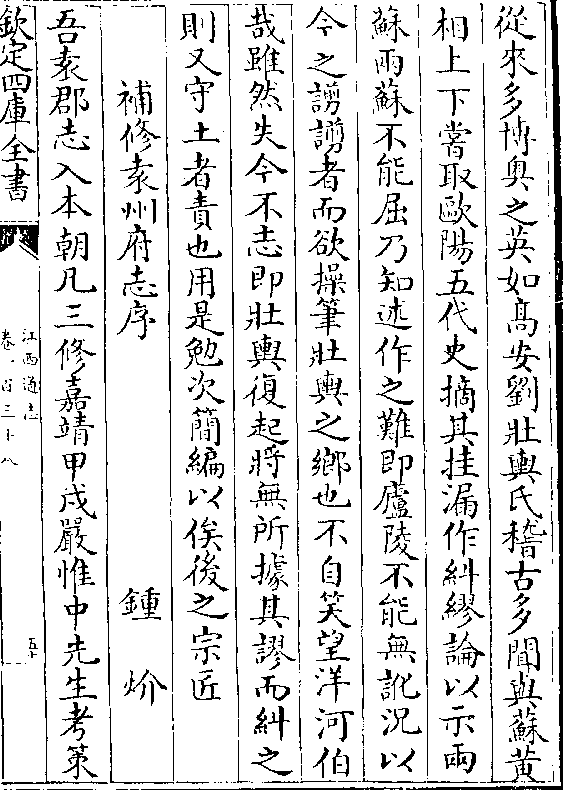 從來多博奥之英如髙安劉壯輿氏稽古多聞與蘇黃
相上下嘗取歐陽五代史摘其挂漏作糾繆論以示兩
蘇兩蘇不能屈乃知述作之難即廬陵不能無訛況以
今之謭謭者而欲操筆壯輿之鄉也不自笑望洋河伯
哉雖然失今不志即壯輿復起將無所據其謬而糾之
則又守土者責也用是勉次簡編以俟後之宗匠
補修袁州府志序
鍾炌
吾袁郡志入本朝凡三修嘉靖甲戍嚴惟中先生考第
欽定四庫全書
江西通志
卷一百三十八
五十